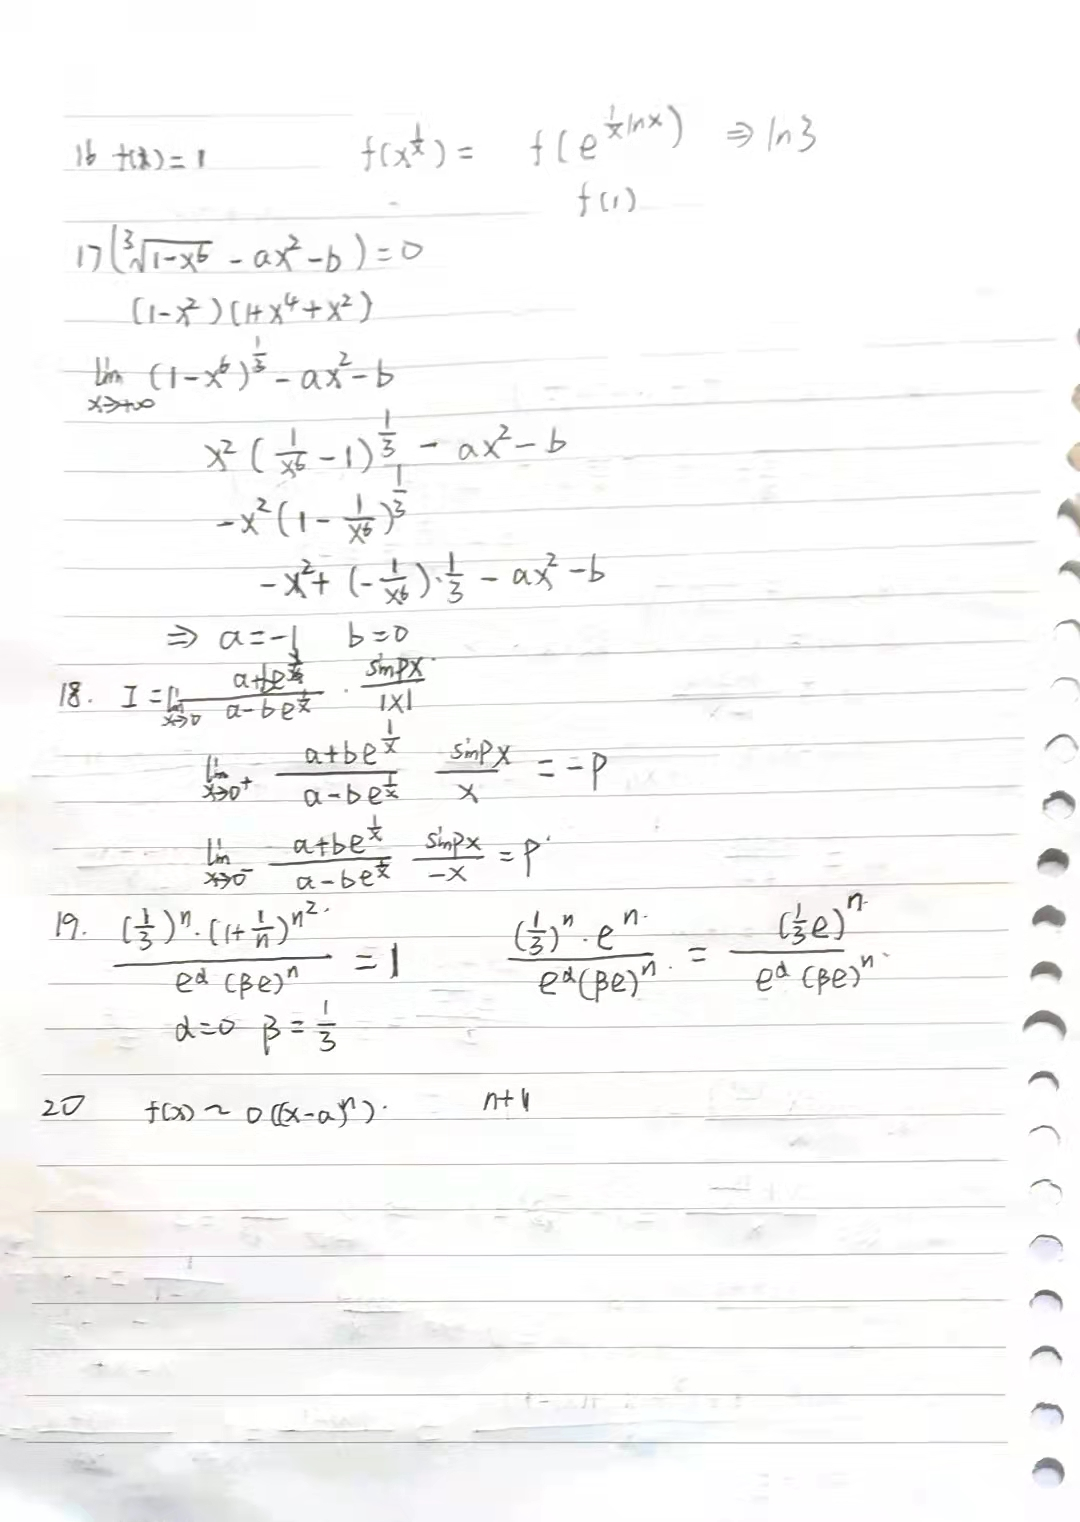 16 f(x)=1 f(x^{1/x}) = f(e^{1/x lnx}) ⇒ ln3
f(1)
17 (∛(1-x⁶) - ax² - b) = 0
(1-x²)(1+x⁴+x²)
lim x→+∞ (1-x⁶)^{1/3} - ax² - b
x²(1/x⁶ - 1)^{1/3} - ax² - b
-x²(1 - 1/x⁶)^{1/3}
-x² + (-1/x⁶)·1/3 - ax² - b
⇒ a=-1 b=0
18. I = lim x→0 (a+be^{1/x})/(a-be^{1/x}) · sinpx/|x|
lim x→0⁺ (a+be^{1/x})/(a-be^{1/x}) sinpx/x = -p
lim x→0⁻ (a+be^{1/x})/(a-be^{1/x}) sinpx/-x = p
19. ((1/3)ⁿ·(1+1/n)^{n²})/(e^α(βe)ⁿ) = 1 ((1/3)ⁿ·eⁿ)/(e^α(βe)ⁿ) = (1/3 e)ⁿ/(e^α(βe)ⁿ)
α=0 β=1/3
20 f(x) ~ o((x-a)ⁿ). n+1